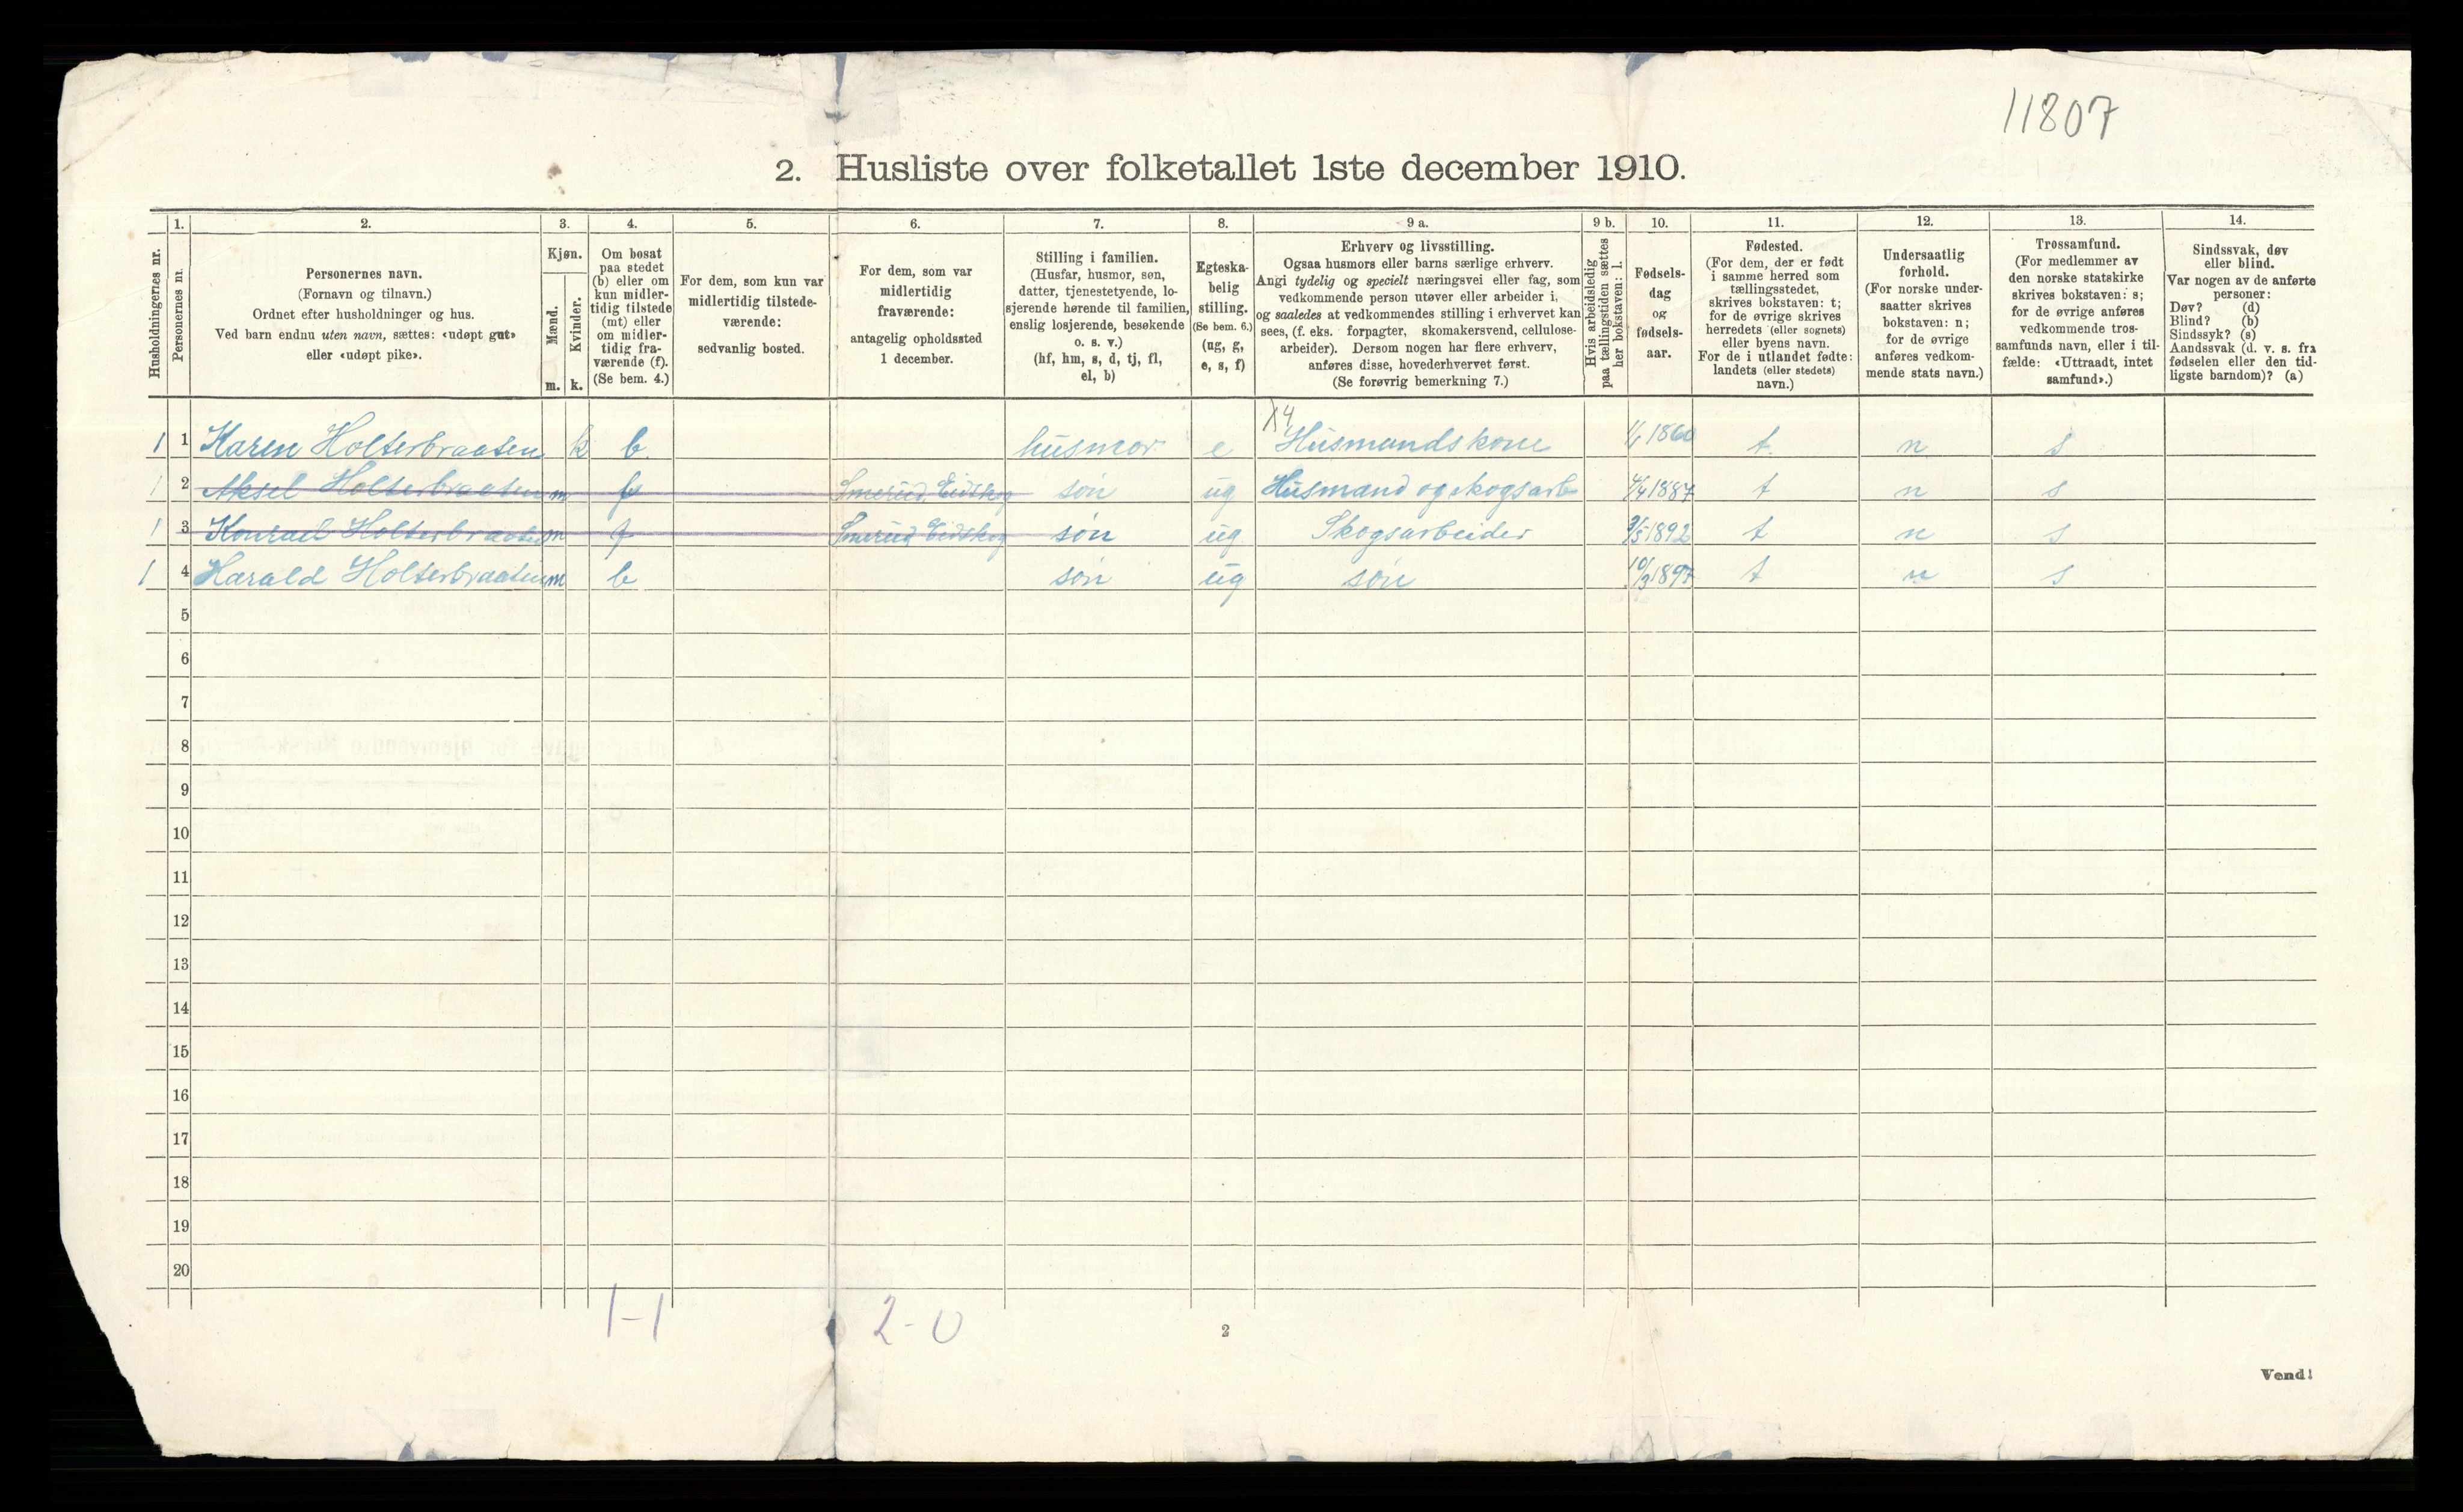 11807
2. Husliste over folketallet 1ste december 1910.
Husholdningernes nr.
1.
Personernes nr.
2.
Personernes navn.
(Fornavn og tilnavn.)
Ordnet efter husholdninger og hus.
Ved barn endnu uten navn, sættes: «udøpt gut»
eller «udøpt pike».
3.
Kjøn.
Mænd.
Kvinder.
m. k.
4.
Om bosat
paa stedet
(b) eller om
kun midler-
tidig tilstede
(mt) eller
om midler-
tidig fra-
værende (f).
(Se bem. 4.)
5.
For dem, som kun var
midlertidig tilstede-
værende:
sedvanlig bosted.
6.
For dem, som var
midlertidig
fraværende:
antagelig opholdssted
1 december.
7.
Stilling i familien.
(Husfar, husmor, søn,
datter, tjenestetyende, lo-
sjerende hørende til familien,
enslig losjerende, besøkende
o. s. v.)
(hf, hm, s, d, tj, fl,
el, b)
8.
Egteska-
belig
stilling.
(Se bem. 6.)
(ug, g,
e, s, f)
9 a.
Erhverv og livsstilling.
Ogsaa husmors eller barns særlige erhverv.
Angi tydelig og specielt næringsvei eller fag, som
vedkommende person utøver eller arbeider i,
og saaledes at vedkommendes stilling i erhvervet kan
sees, (f. eks. forpagter, skomakersvend, cellulose-
arbeider). Dersom nogen har flere erhverv,
anføres disse, hovederhvervet først.
(Se forøvrig bemerkning 7.)
9 b.
Hvis arbeidsledig
paa tællingstiden sættes
her bokstaven: l.
10.
Fødsels-
dag
og
fødsels-
aar.
11.
Fødested.
(For dem, der er født
i samme herred som
tællingsstedet,
skrives bokstaven: t;
for de øvrige skrives
herredets (eller sognets)
eller byens navn.
For de i utlandet fødte:
landets (eller stedets)
navn.)
12.
Undersaatlig
forhold.
(For norske under-
saatter skrives
bokstaven: n;
for de øvrige
anføres vedkom-
mende stats navn.)
13.
Trossamfund.
(For medlemmer av
den norske statskirke
skrives bokstaven: s;
for de øvrige anføres
vedkommende tros-
samfunds navn, eller i til-
fælde: «Uttraadt, intet
samfund».)
14.
Sindssvak, døv
eller blind.
Var nogen av de anførte
personer:
Døv? (d)
Blind? (b)
Sindssyk? (s)
Aandssvak (d. v. s. fra
fødselen eller den tid-
ligste barndom)? (a)
X4
1 1 Karen Holterbraaten k b. husmor e Husmandskone 1/1 1860 t. n s
1 2 Aksel Holterbraaten m f Smerud Eidskog søn ug Husmand og skogsarb 4/4 1887 t n s
1 3 Konrad Holterbraaten m f Smerud Eidskog søn ug Skogsarbeider 3/5 1892 t n s
1 4 Harald Holterbraaten m b søn ug søn 10/3 1897 t n s
5
6
7
8
9
10
11
12
13
14
15
16
17
18
19
20
1-1 2-0
2
Vend!